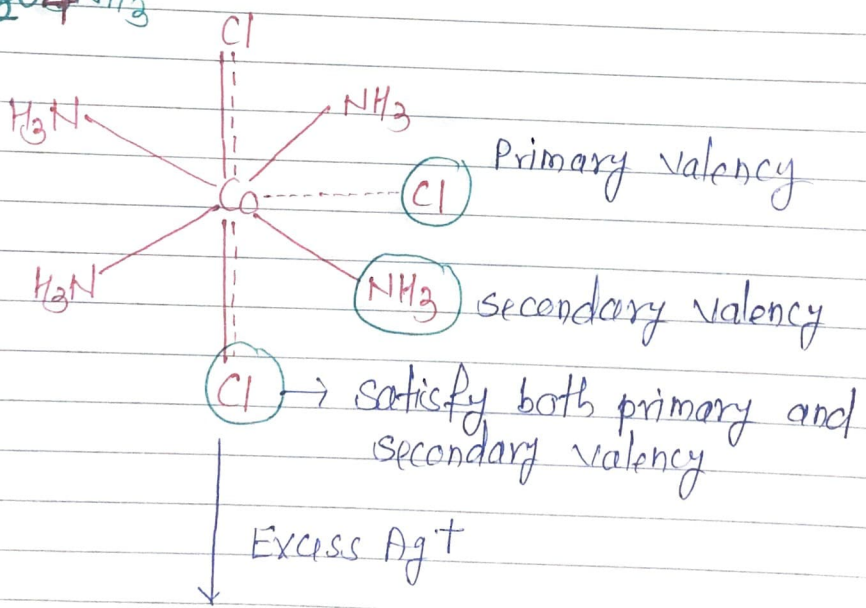 Cl
H3N
NH3
Primary valency
Co
Cl
H3N
NH3
secondary valency
Cl → satisfy both primary and
secondary valency
Excess Ag+